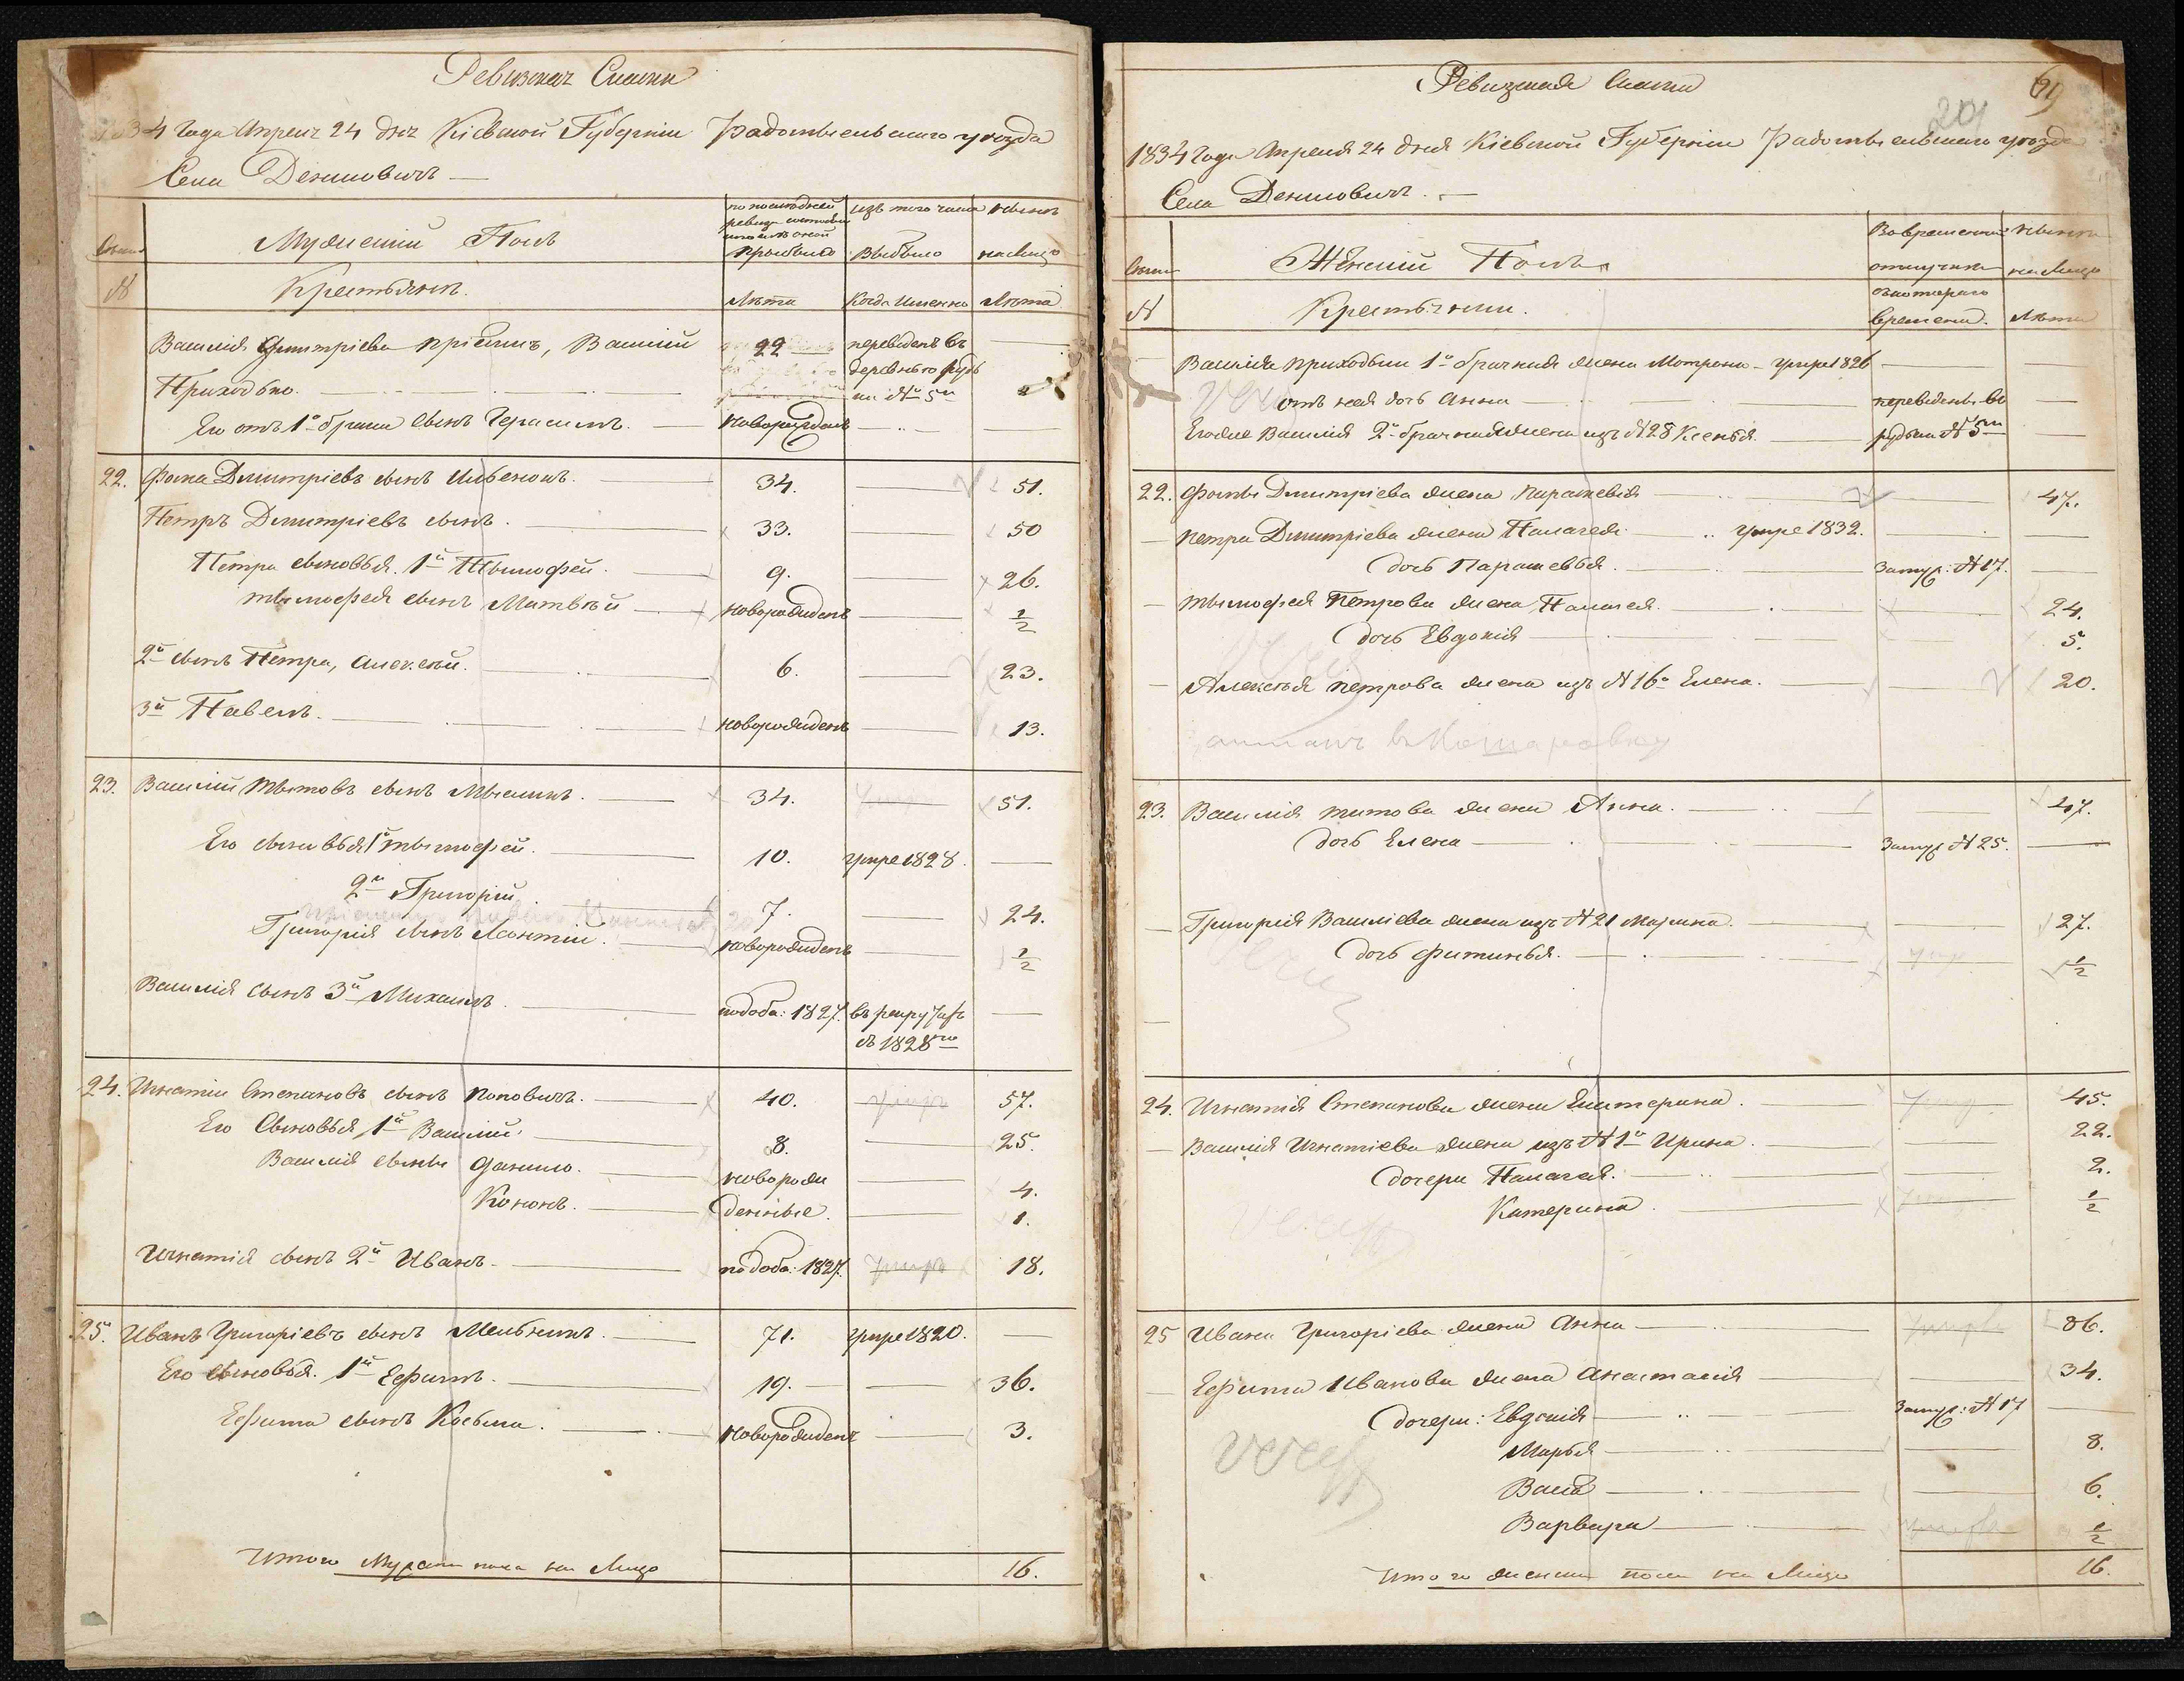 Ревизская Сказка
1834 Года Апреля 24 дня Кіевской Губерніи Радомысльского уезда
Села Денисовичъ
Мужеский Полъ
по последней ревизіи состояло
прибыло
изъ того числа
Выбыло
ныне
на лицо
№
Крестьяне.
Лета
Когда именно
Лета
Василія Дмитріева пріемишъ, Василий
22
переведенъ въ
деревню Рудь
Приходько.
ки № 5й
Его отъ 1го брака сынъ Герасимъ.
новорожденъ
22. Фома Дмитріевъ сынъ Ильенокъ. 34. 51.
Петръ Дмитріевъ сынъ. 33. 50
Петра сыновья. 1й Тымофей. 9. 26.
тымофея сынъ Матвей новорожденъ ½
2й сынъ Петра, Алексей. 6. 23.
3й Павелъ. новорожденъ 13.
23. Василий Тытовъ сынъ 34. 51.
Его сыновья 1й тымофей. 10. умре 1828.
2й Григорій. 7. 24.
Григорія сынъ Леонтій. новорожденъ ½
Василія сынъ 3й Михаилъ подоба: 1827. въ рекруты
въ 1828го
24. Игнатій Степановъ сынъ Поповичъ. 40. умре 57.
Его Сыновья, 1й Василий 8. 25.
Василія сыны Данило. новорож 4.
Кононъ. денные. 1.
Игнатія сынъ 2й Иванъ. подоба: 1827. умре 18.
25. Иванъ Григоріевъ сынъ Мельникъ. 71. умре 1820.
Его сыновья. 1й Ефимъ. 19. 36.
Ефима сынъ Косьма. новорожденъ 3.
Итого Мужеска пола на лицо 16.
Ревизская Сказка
69
209
1834 Года Апреля 24 дня Кіевской Губерніи Радомысльского уезда
Села Денисовичъ.
Женский Полъ.
Во временной
отлучке
ныне
на лицо
№
Крестьянки.
съ котораго
времени.
Лета
Василія Приходьки 1й брачная жена Мотрона - умре 1826
отъ нея дочь Анна переведены въ
Его же Василія 2й брачная жена изъ № 28 Ксенія. рудьки № 5й
22. Фомы Дмитріева жена Параскевія 47.
Петра Дмитріева жена Палагея. умре 1832.
Дочь Параскевья. Замуж: № 17.
Тымофея Петрова жена Палагея. 24.
Дочь Евдокія 5.
Алексея Петрова жена изъ № 16го Елена. 20.
23. Василія титова жена Анна. 47.
Дочь Елена Замуж № 25.
Григорія Василіева жена изъ № 21 Марина. 27.
Дочь Фитинья. умре ½
24. Игнатія Степанова жена Екатерина. умре 45.
Василія Игнатіева жена изъ № 1й Ирина. 22.
Дочери Палагея. 2.
Катерина. умре ½
25 Ивана Григоріева жена Анна умре 86.
Ефима Иванова жена Анастасія 34.
Дочери: Евдокія Замуж: № 17
Марья 8.
Васа 6.
Варвара умре ½
Итого женска пола на лицо 16.